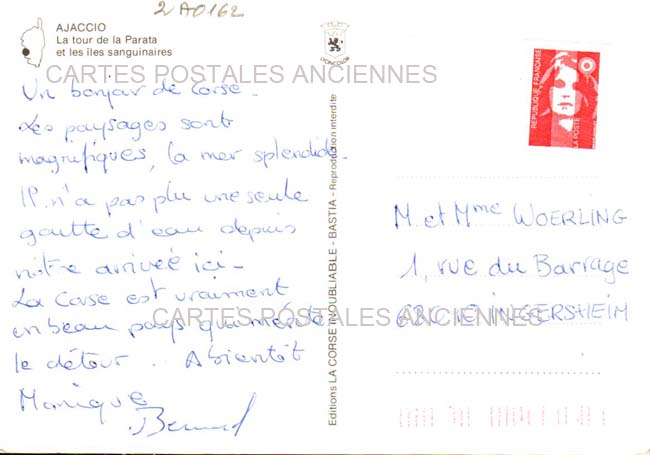 2A0162
AJACCIO
La tour de la Parata
et les îles sanguinaires
CARTES POSTALES ANCIENNES
Un bonjour de Corse.
Les paysages sont
magnifiques, la mer splendide.
Il n'a pas plu une seule
goutte d'eau depuis
notre arrivée ici.
La Corse est vraiment
un beau pays qui mérite
le détour. A bientôt
Monique
Bernard
Editions LA CORSE INOUBLIABLE - BASTIA - Reproduction interdite
REPUBLIQUE FRANÇAISE
LA POSTE
M. et Mme WOERLING
1, rue du Barrage
INGERSHEIM
CARTES POSTALES ANCIENNES